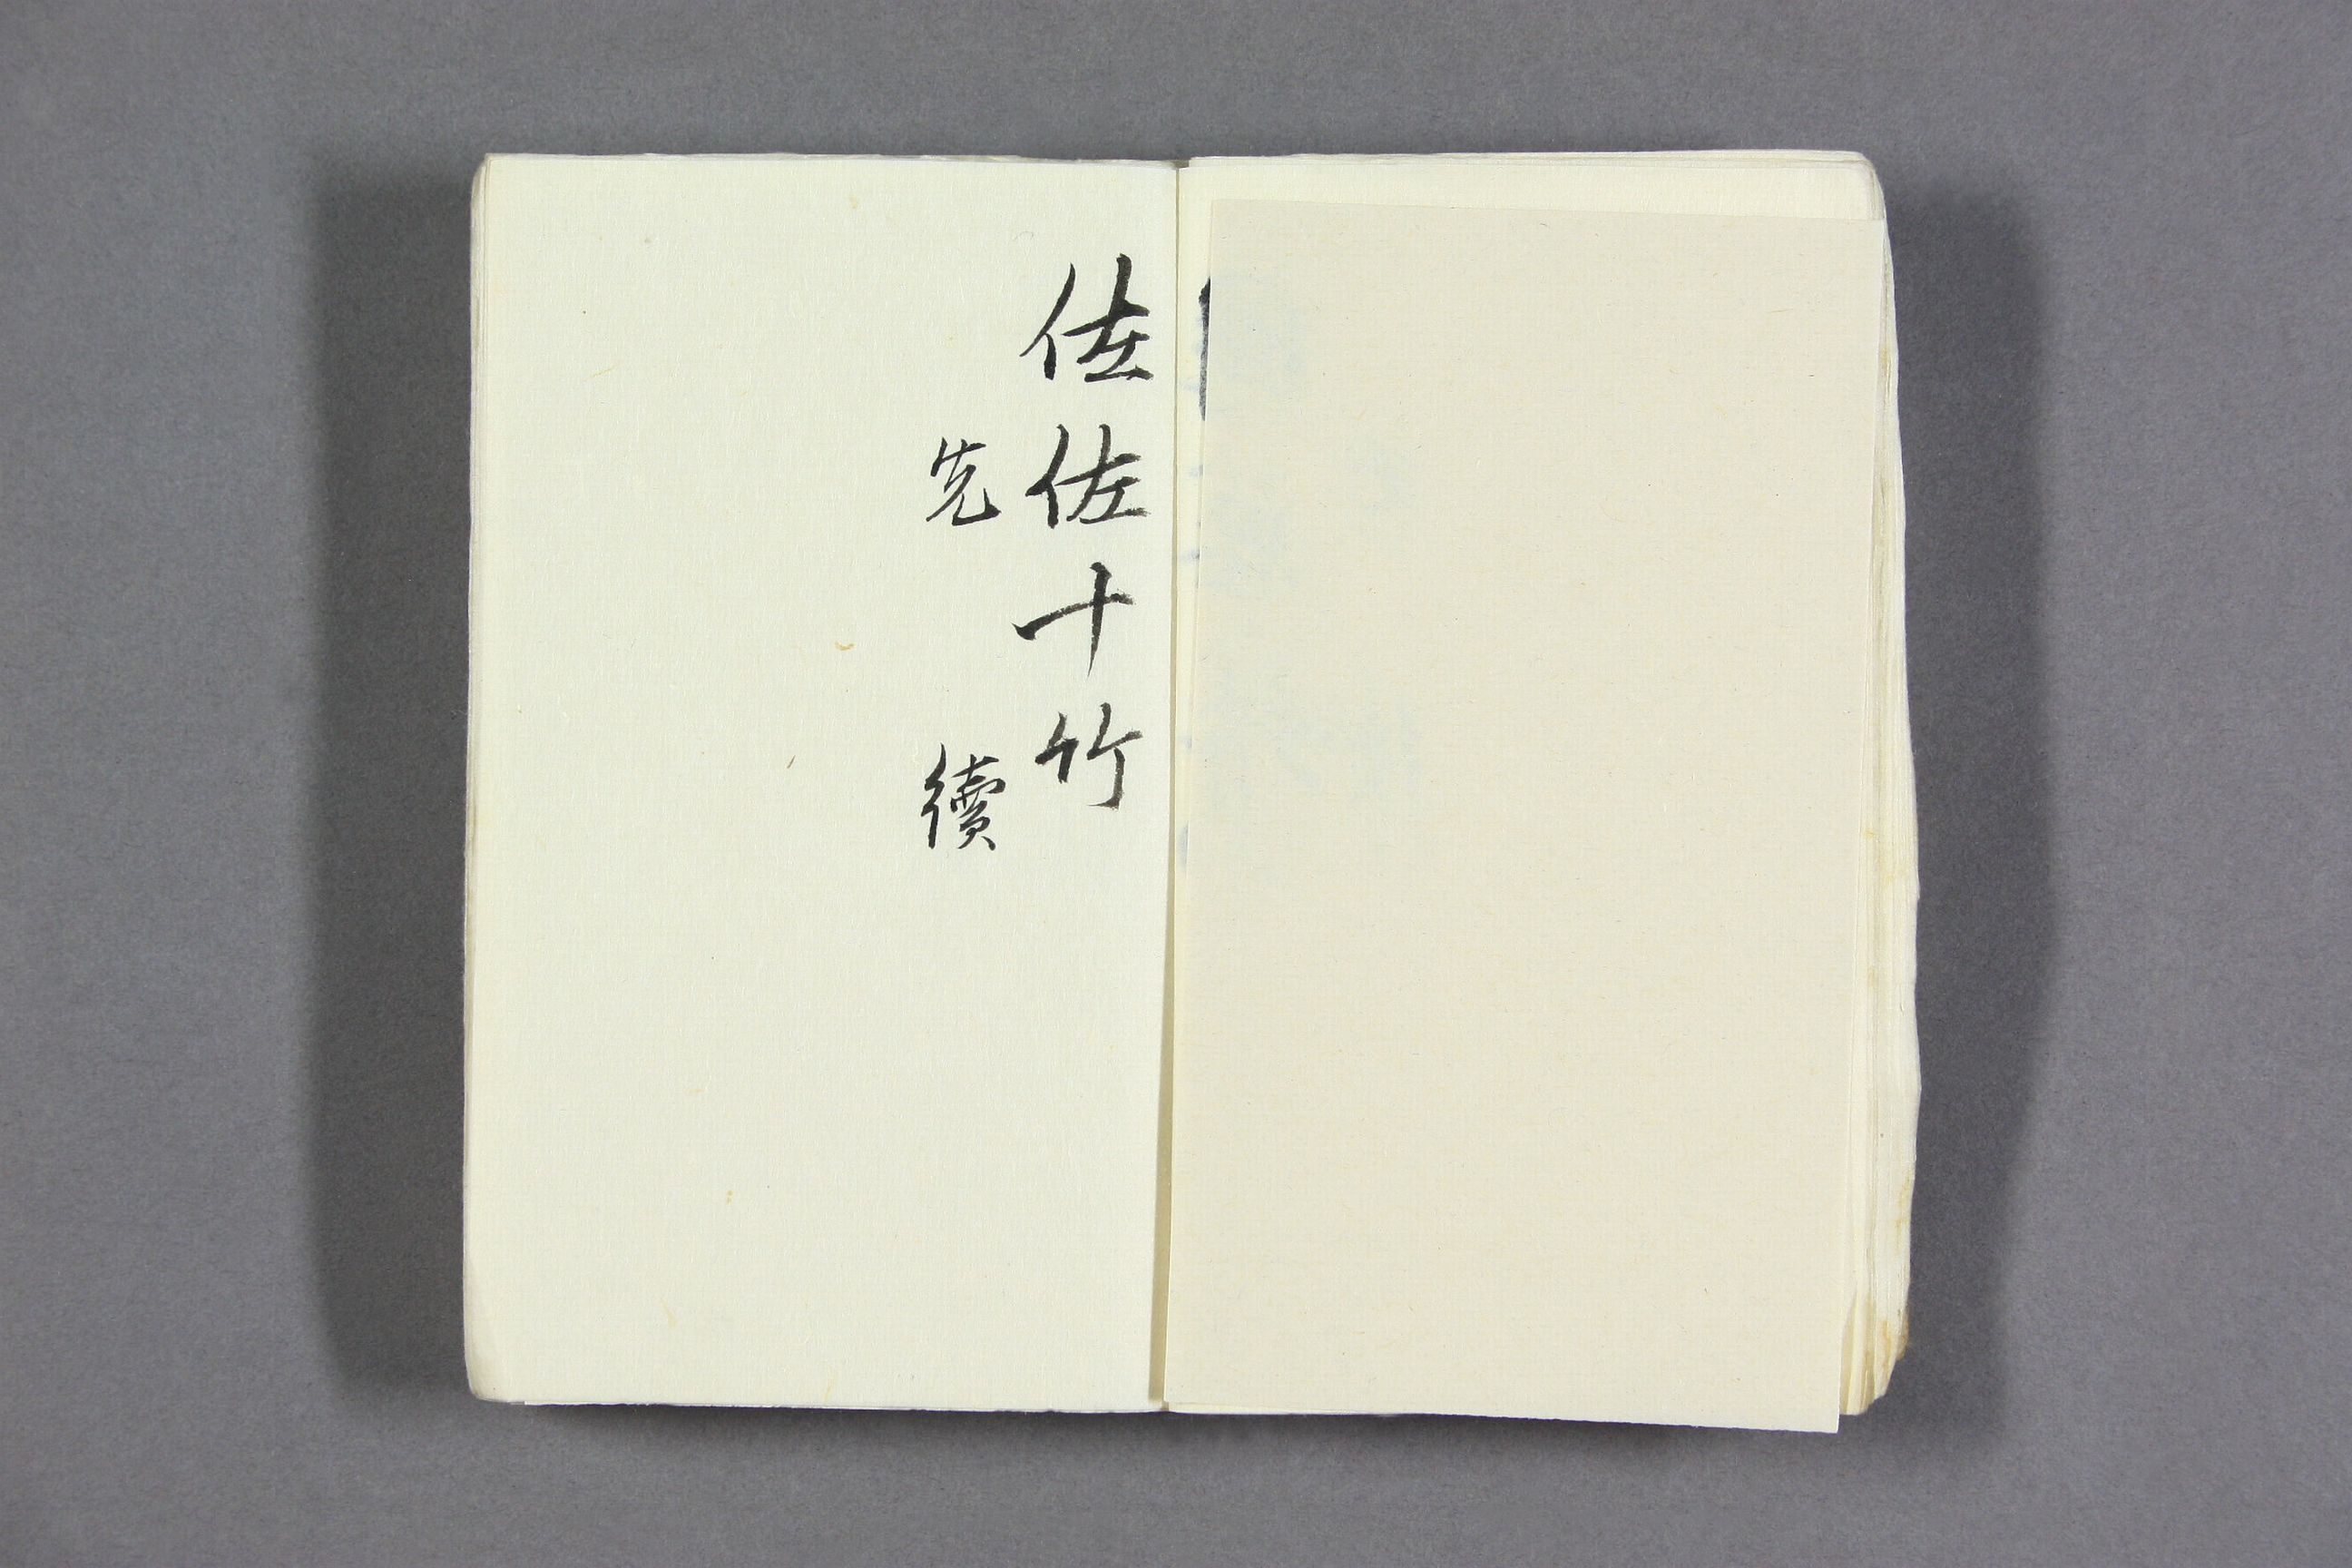 佐佐十竹
先　續